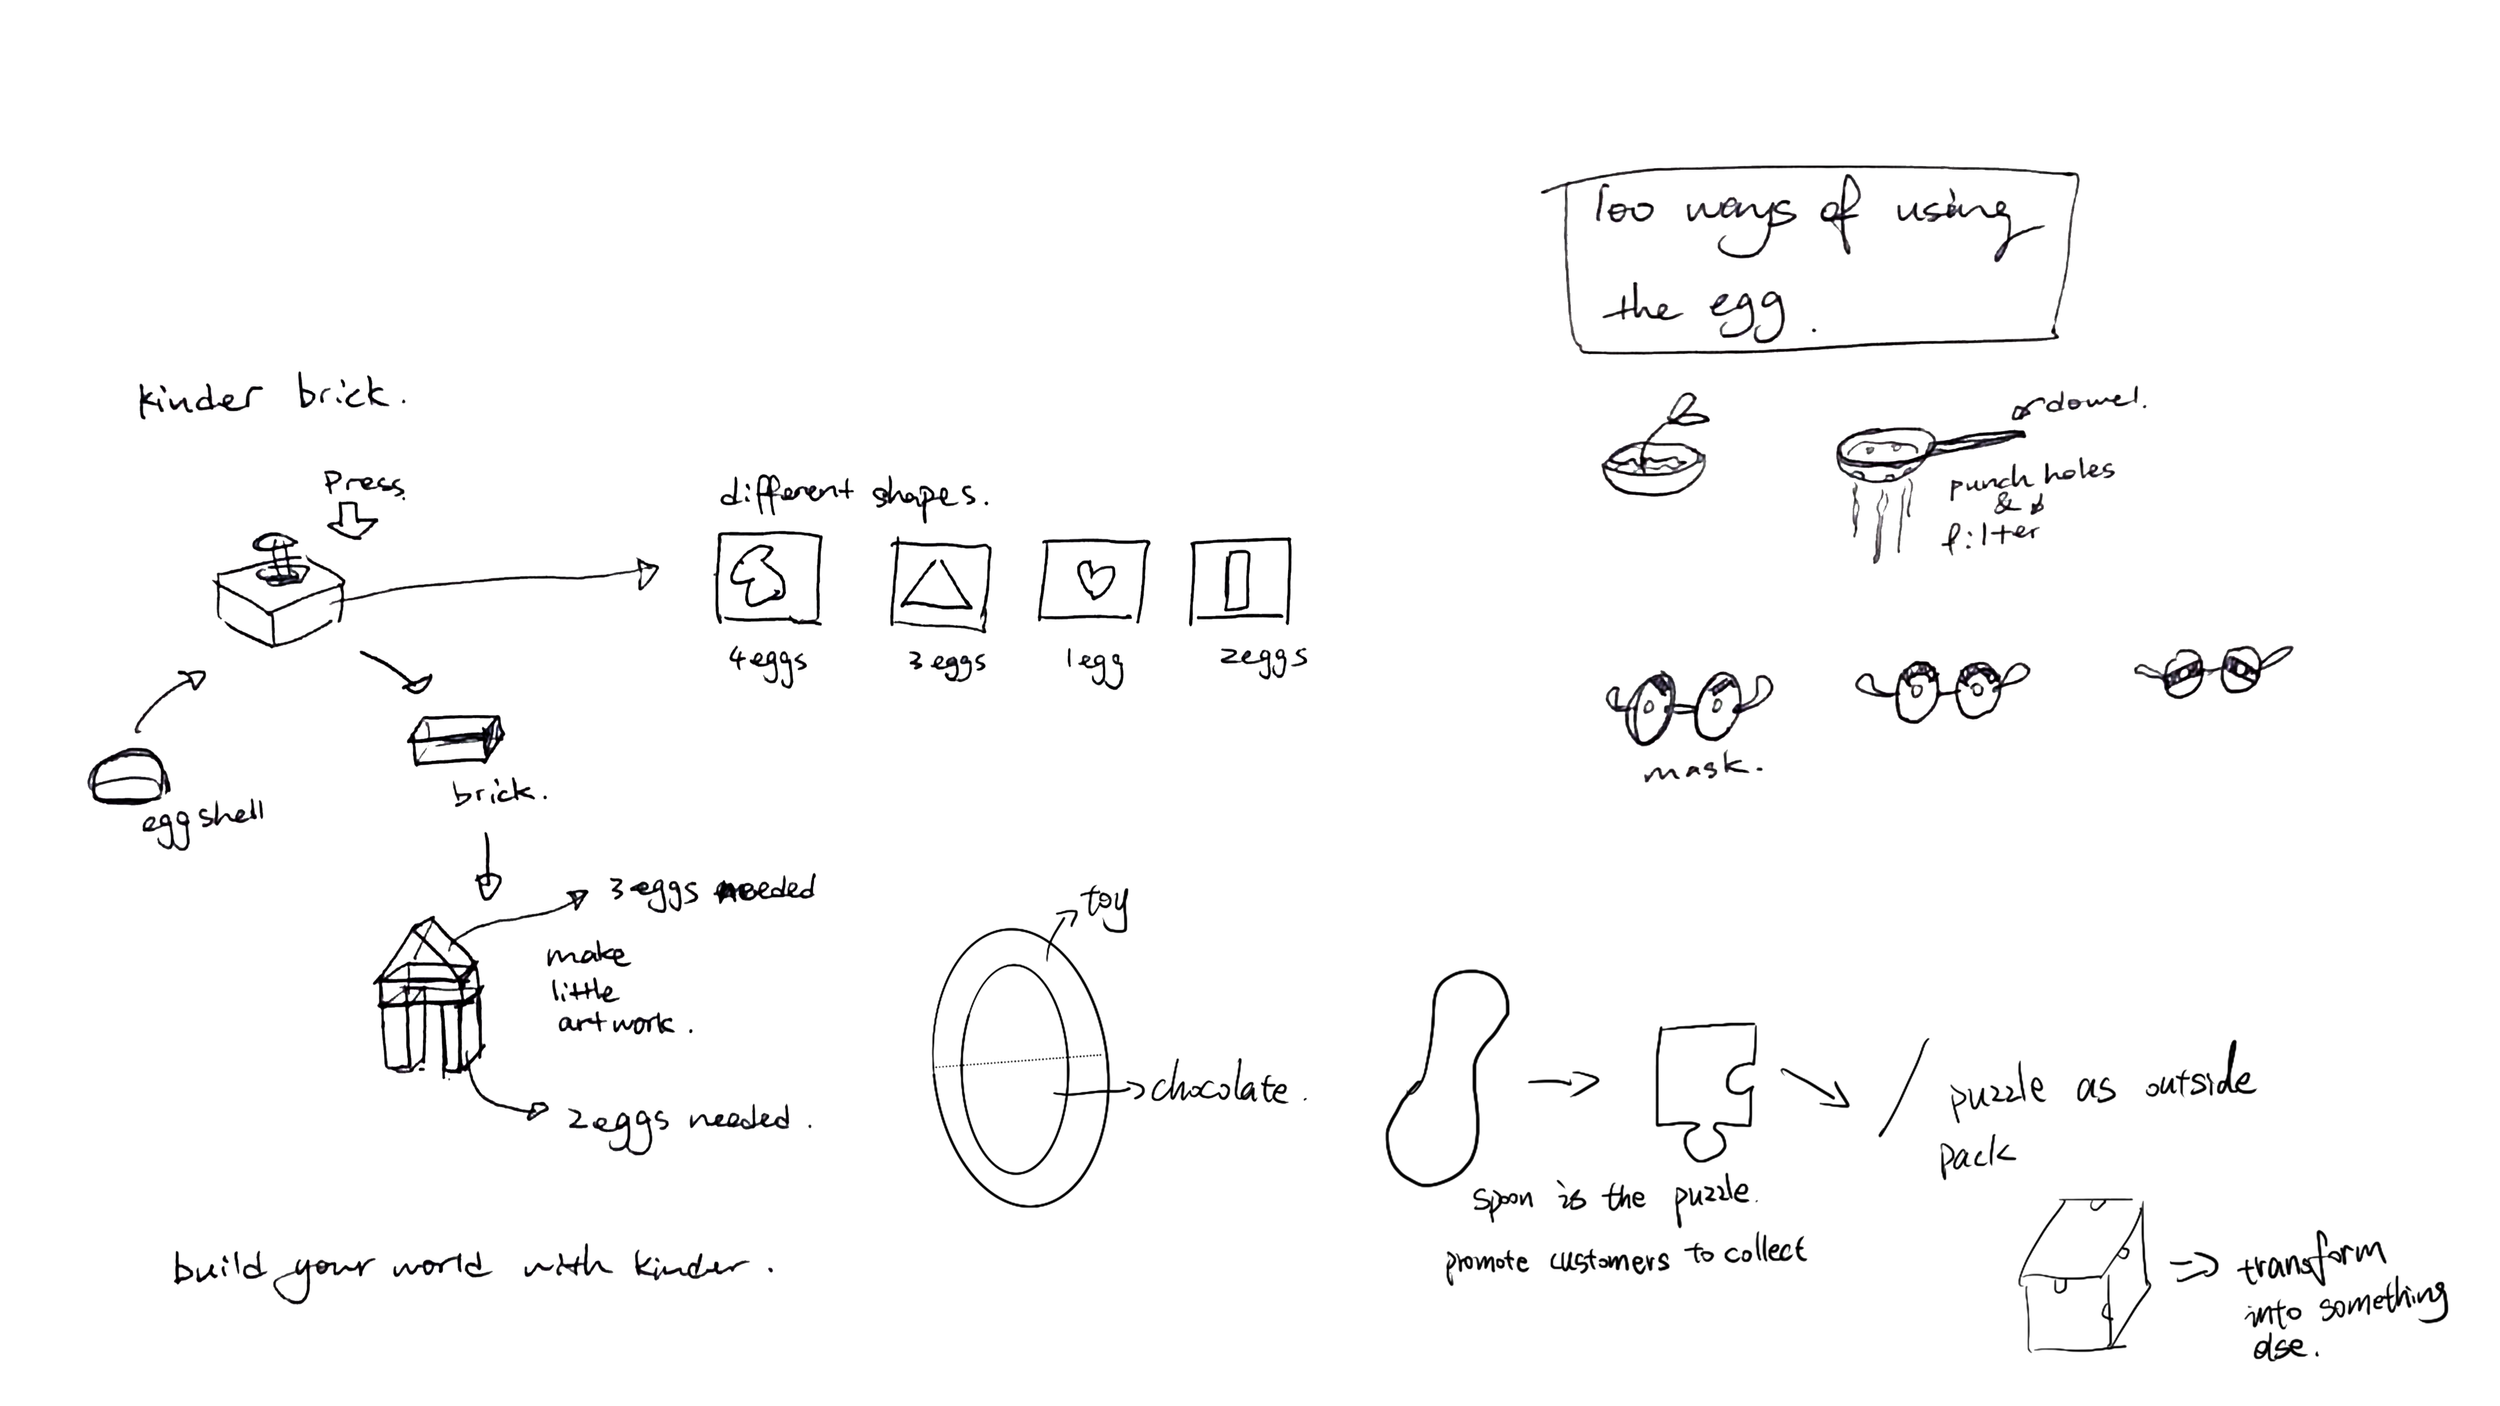 100 ways of using
the egg.
kinder brick.
Press
different shapes.
4 eggs
3 eggs
1 egg
2 eggs
egg shell
brick.
3 eggs needed
make
little
artwork.
2 eggs needed.
build your world with kinder.
dowel.
punch holes
&
filter
mask.
toy
chocolate.
spoon is the puzzle.
promote customers to collect
puzzle as outside
pack
transform
into something
else.